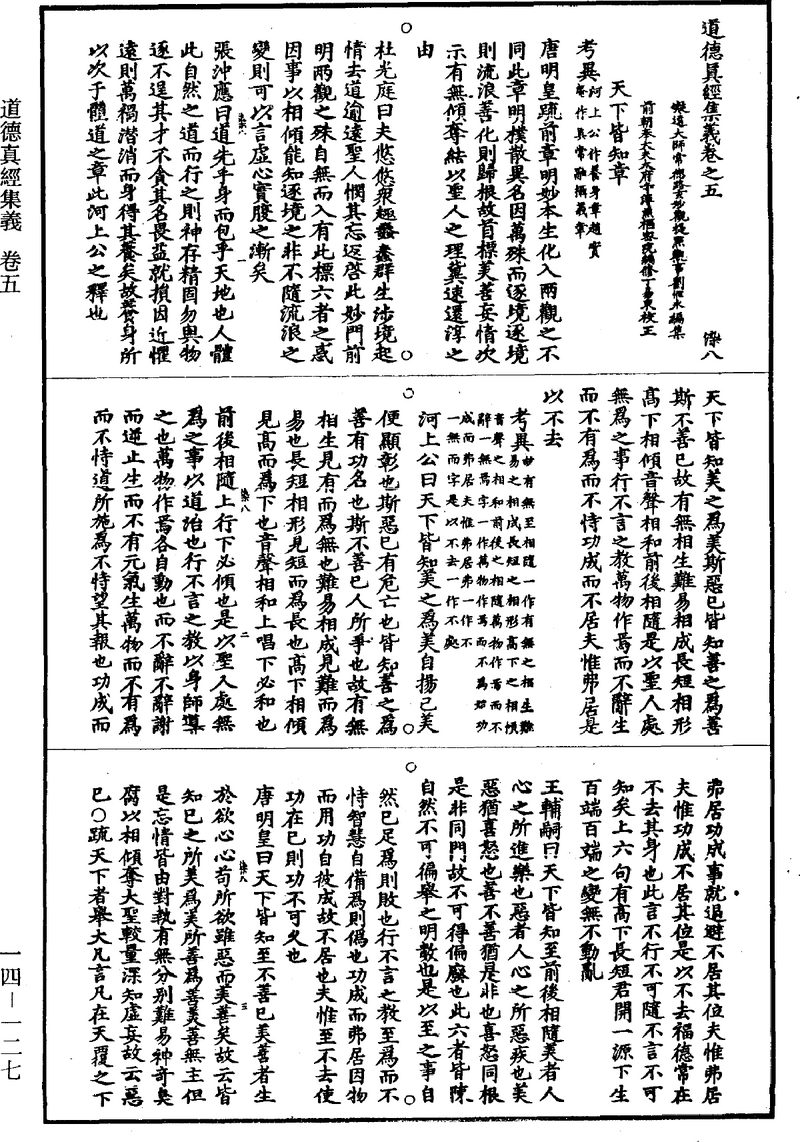 道德真經集義卷之五　染八
凝遠大師常德路玄妙觀提點觀事劉惟永編集
前朝奉大夫太府寺簿兼樞密院編修丁易東校正
天下皆知章
考異河上公作養身章趙實
菴作真常融攝義章
唐明皇疏前章明妙本生化入兩觀之不
同此章明樸散異名因萬殊而逐境逐境
則流浪善化則歸根故首標美善妄情次
示有無傾奪結以聖人之理冀速還淳之
由
杜光庭曰夫悠悠衆趣蠢蠢群生涉境起
情去道逾遠聖人憫其忘返啓此妙門前
明兩觀之殊自無而入有此標六者之惑
因事以相傾能知逐境之非不隨流浪之
變則可以言虛心實腹之漸矣
染八　一
張沖應曰道先乎身而包乎天地也人體
此自然之道而行之則神存精固勿與物
逐不逞其才不貪其名畏益就損因近懼
遠則萬禍潛消而身得其養矣故養身所
以次于體道之章此河上公之釋也
天下皆知美之爲美斯惡已皆知善之爲善
斯不善已故有無相生難易相成長短相形
高下相傾音聲相和前後相隨是以聖人處
無爲之事行不言之教萬物作焉而不辭生
而不有爲而不恃功成而不居夫惟弗居是
以不去
考異妙有無至相隨一作有無之相生難
易之相成長短之相形高下之相傾
音聲之相和前後之相隨萬物作焉而不
辭一無焉字一作萬物作焉而不爲始功
成而弗居夫惟弗居弗一作不
一無而字是以不去一作不處
河上公曰天下皆知美之爲美自揚己美
使顯彰也斯惡已有危亡也皆知善之爲
善有功名也斯不善已人所爭也故有無
相生見有而爲無也難易相成見難而爲
易也長短相形見短而爲長也高下相傾
見高而爲下也音聲相和上唱下必和也
染八　二
前後相隨上行下必傾也是以聖人處無
爲之事以道治也行不言之教以身師導
之也萬物作焉各自動也而不辭不辭謝
而逆止生而不有元氣生萬物而不有爲
而不恃道所施爲不恃望其報也功成而
弗居功成事就退避不居其位夫惟弗居
夫惟功成不居其位是以不去福德常在
不去其身也此言不行不可隨不言不可
知矣上六句有高下長短君開一源下生
百端百端之變無不動亂
王輔嗣曰天下皆知至前後相隨美者人
心之所進樂也惡者人心之所惡疾也美
惡猶喜怒也善不善猶是非也喜怒同根
是非同門故不可得偏廢也此六者皆陳
自然不可偏舉之明數也是以至之事自
然已足爲則敗也行不言之教至爲而不
恃智慧自備爲則僞也功成而弗居因物
而用功自彼成故不居也夫惟至不去使
功在已則功不可久也
唐明皇曰天下皆知至不善已美善者生
染八　三
於欲心心苟所欲雖惡而美善矣故云皆
知已之所美爲美所善爲善美善無主但
是忘情皆由對執有無分别難易神奇臭
腐以相傾奪大聖較量深知虛妄故云惡
已○疏天下者舉大凡言凡在天覆之下
道德真經集義　卷五
一四—一二七